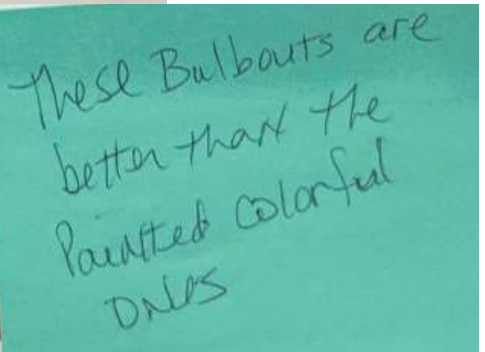 These Bulbouts are
better than the
Paintted colorful
ones